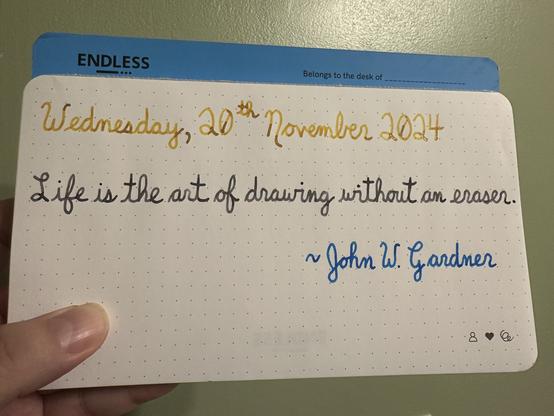 ENDLESS
Belongs to the desk of
Wednesday, 20th November 2024
Life is the art of drawing without an eraser.
~ John W. Gardner